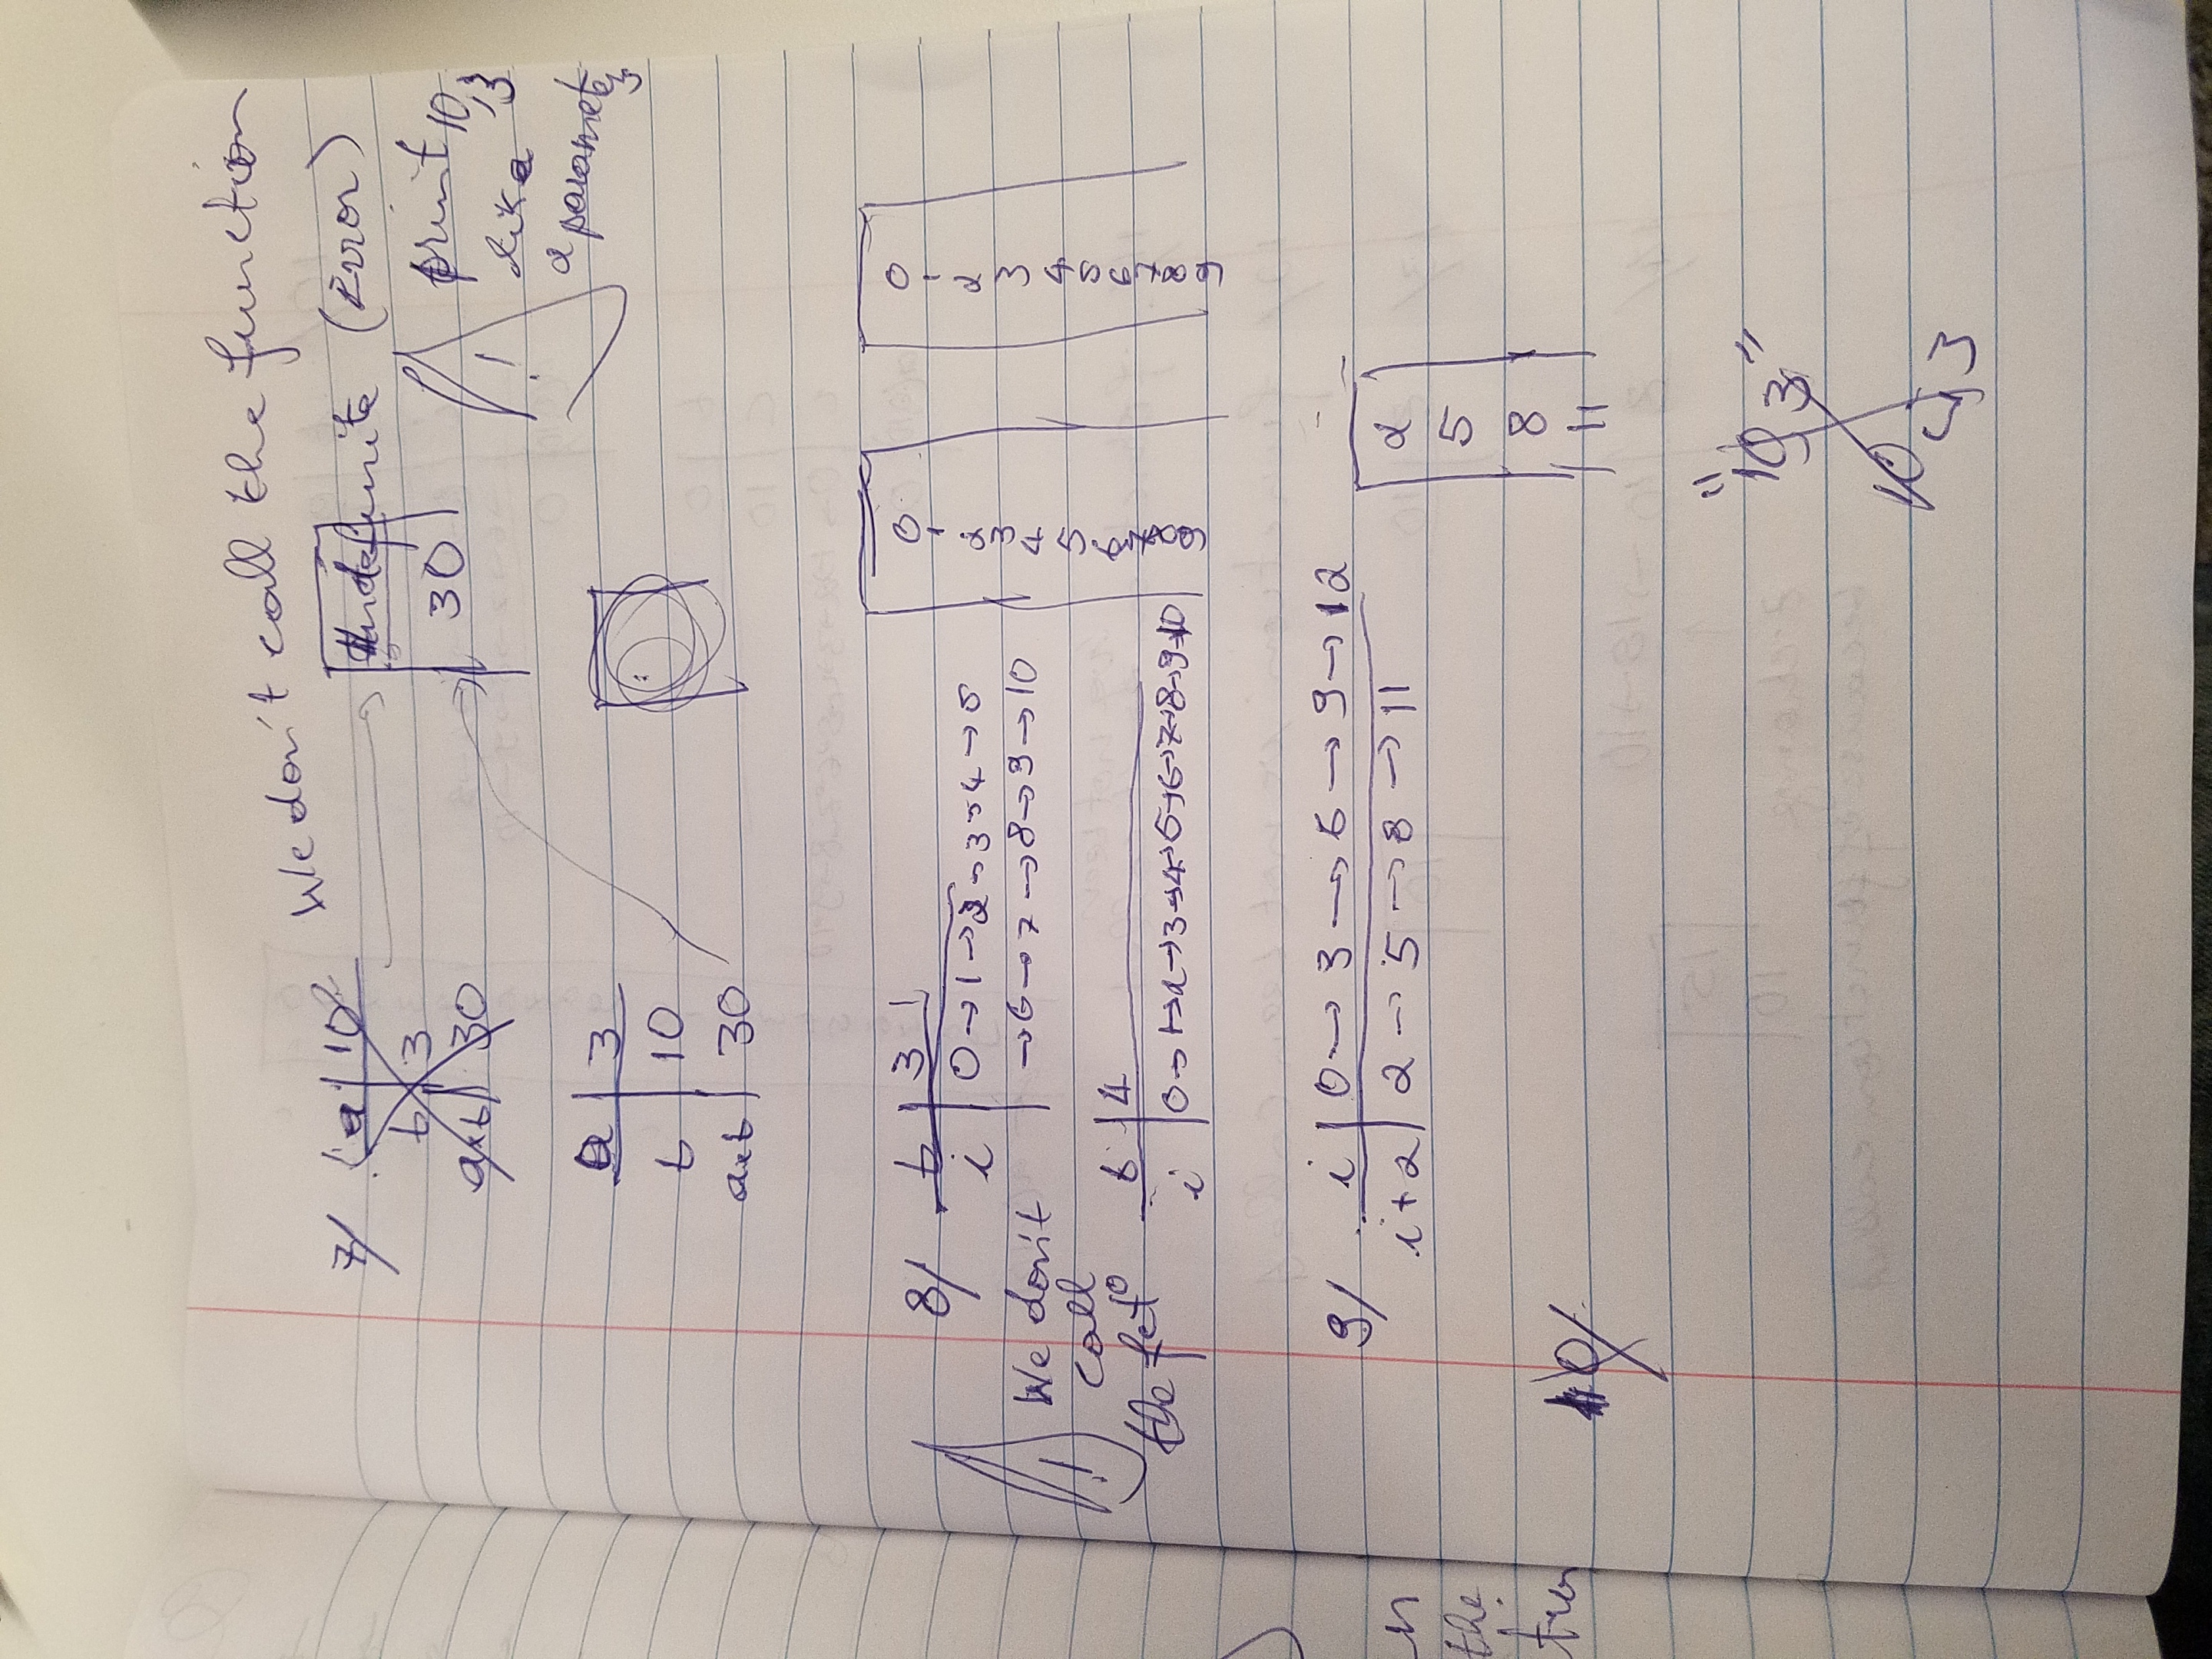 We don't call the function
7/ a | 10
b | 3
a×b | 30
Undefinite (Error)
30
!
print 10,
13
like
a parameter
a | 3
b | 10
a×b | 30
8/ t | 3 1
i | 0 → 1 → 2 → 3 → 4 → 5
→ 6 → 7 → 8 → 9 → 10
! We don't
call
the fct°
t | 4
i | 0 → 1 → 2 → 3 → 4 → 5 → 6 → 7 → 8 → 9 → 10
0
1
2
3
4
5
6
7
8
9
0
1
2
3
4
5
6
7
8
9
9/ i | 0 → 3 → 6 → 9 → 12
i+2 | 2 → 5 → 8 → 11
2
5
8
11
10/
"10 3"
10
, 3
n
the
tion